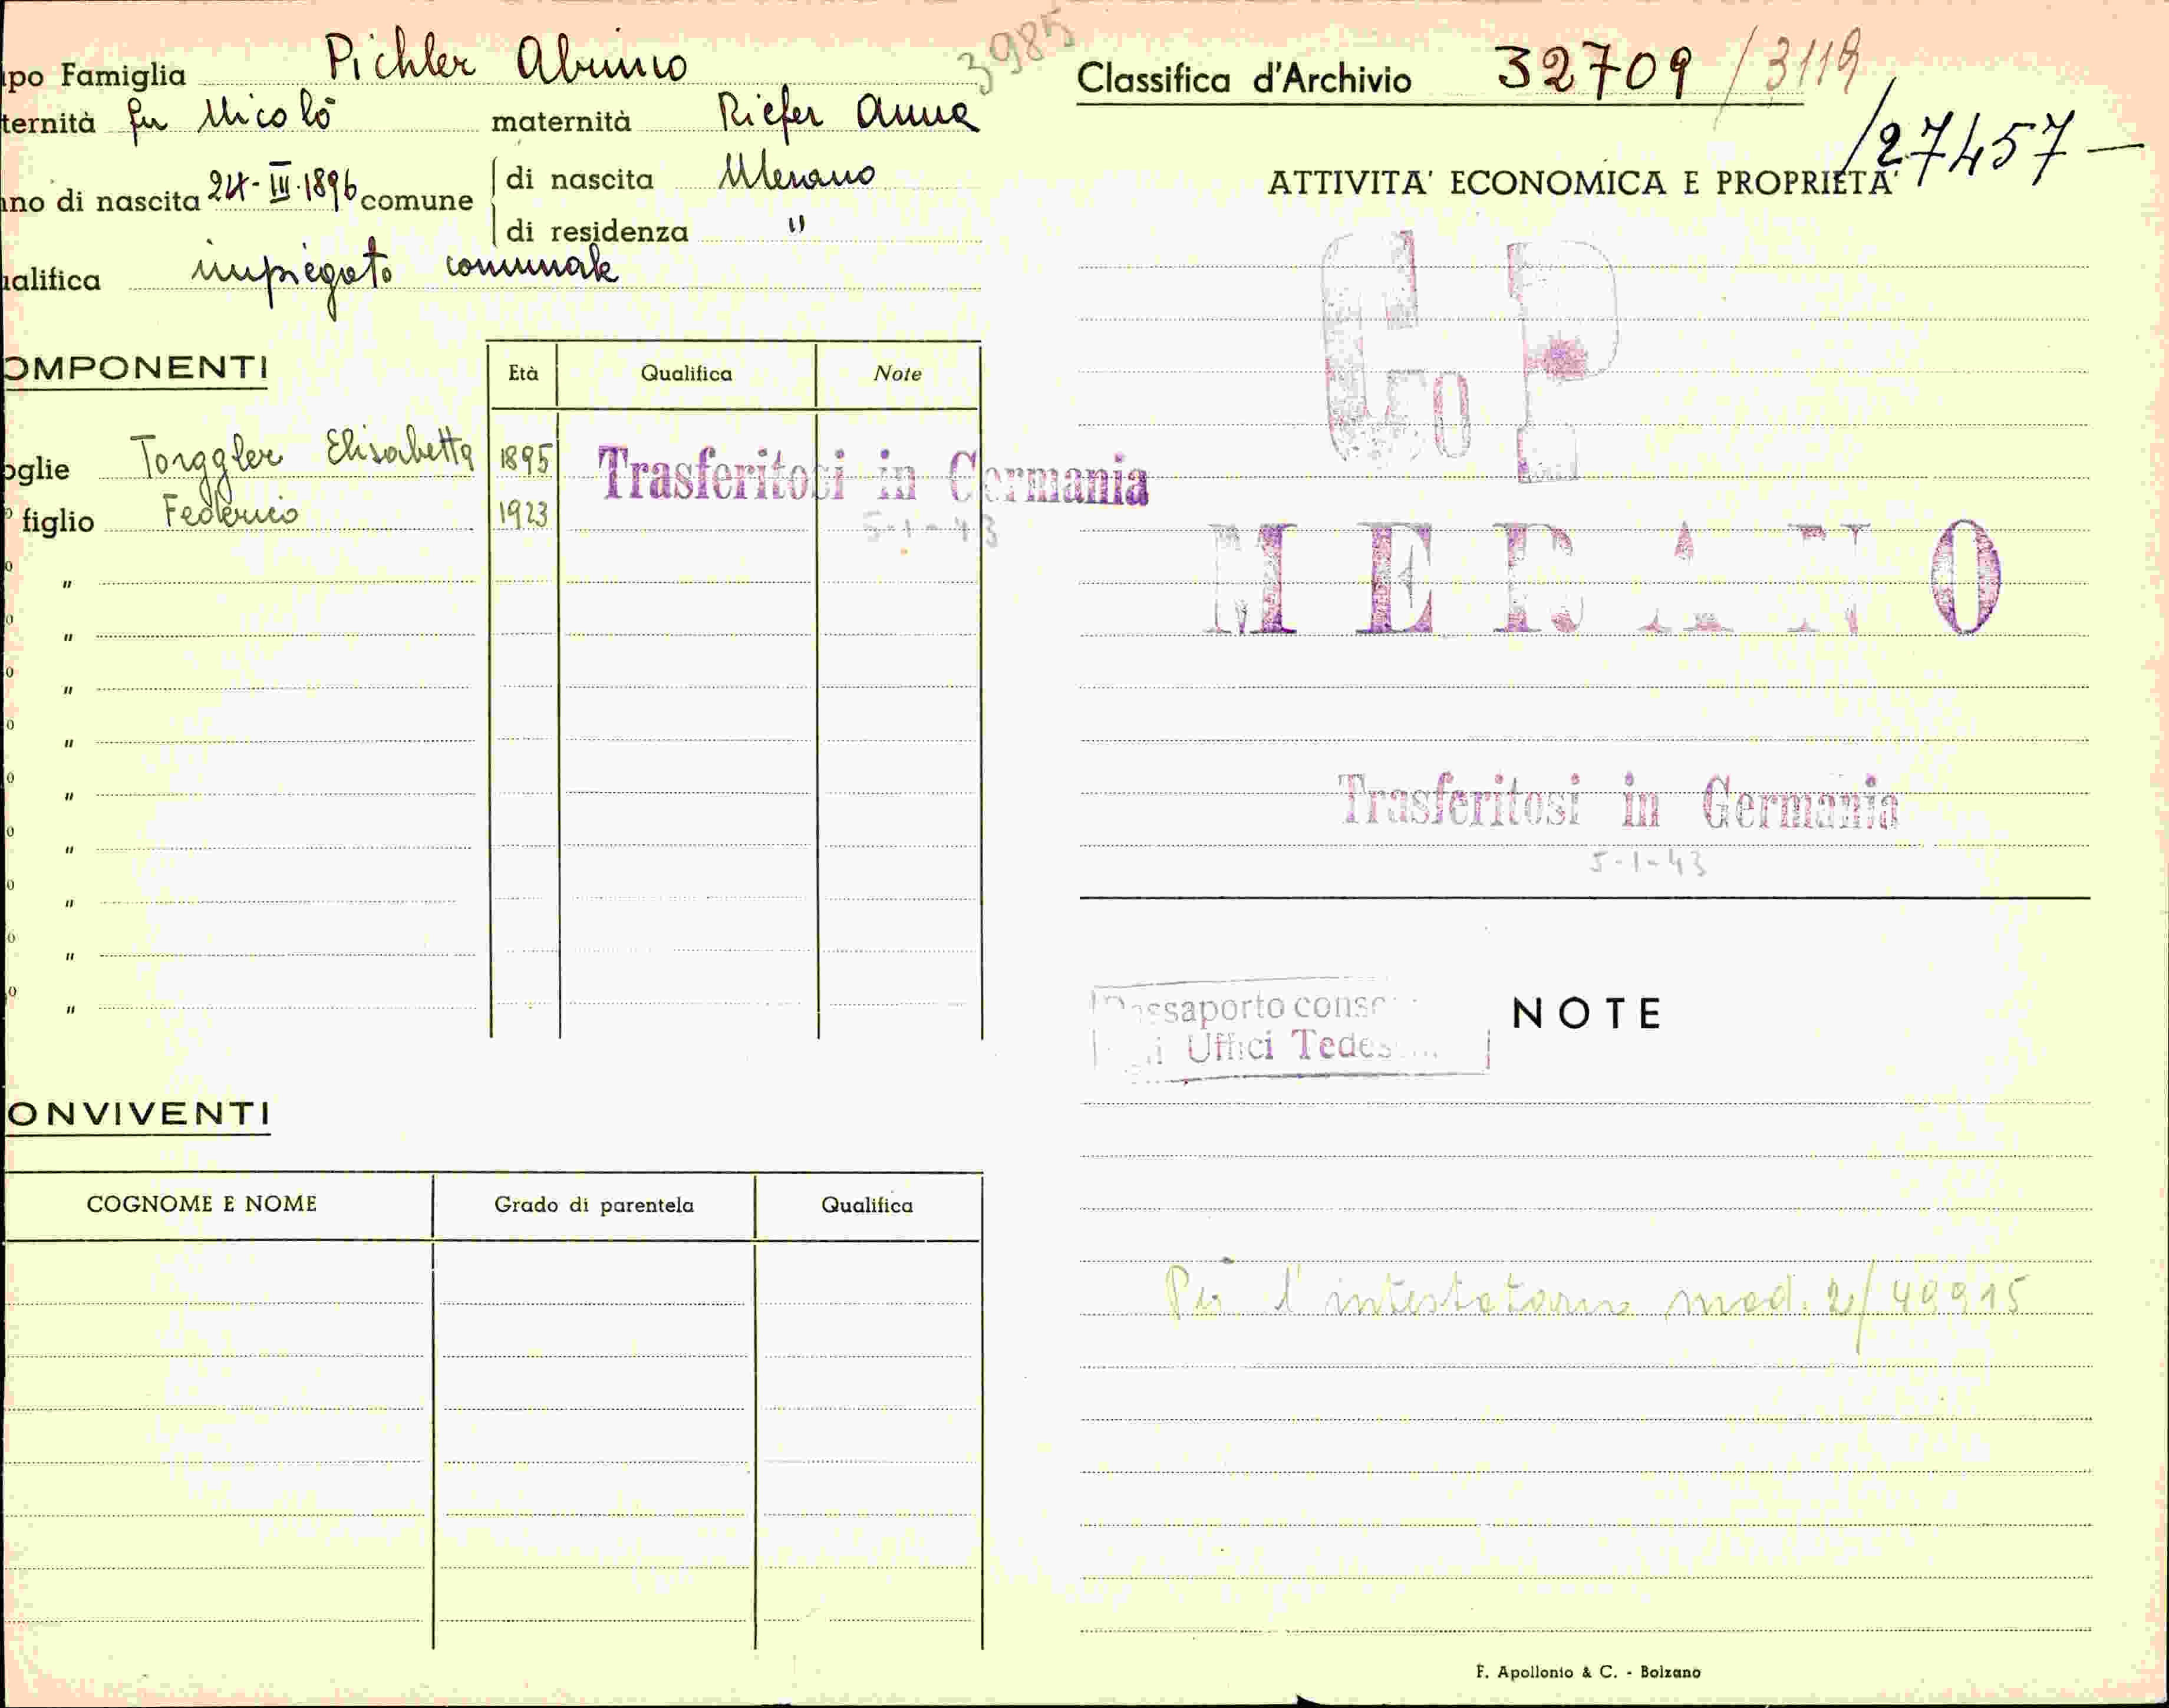 po Famiglia Pichler Albino 3985
ternità fu Nicolò maternità Riefer Anna
no di nascita 24-III-1896 comune di nascita Merano
di residenza "
alifica impiegato comunale
OMPONENTI
Età Qualifica Note
oglie Torggler Elisabetta 1895 Trasferitosi in Germania
figlio Federico 1923 5-1-43
"
"
"
"
"
"
"
"
"
ONVIVENTI
COGNOME E NOME Grado di parentela Qualifica
Classifica d'Archivio 32709 /3119
/27457-
ATTIVITA' ECONOMICA E PROPRIETA'
MERANO
Trasferitosi in Germania
5-1-43
NOTE
Passaporto cons
Uffici Tedes
Per l'intestatario mod. 2/49915
F. Apollonio & C. - Bolzano